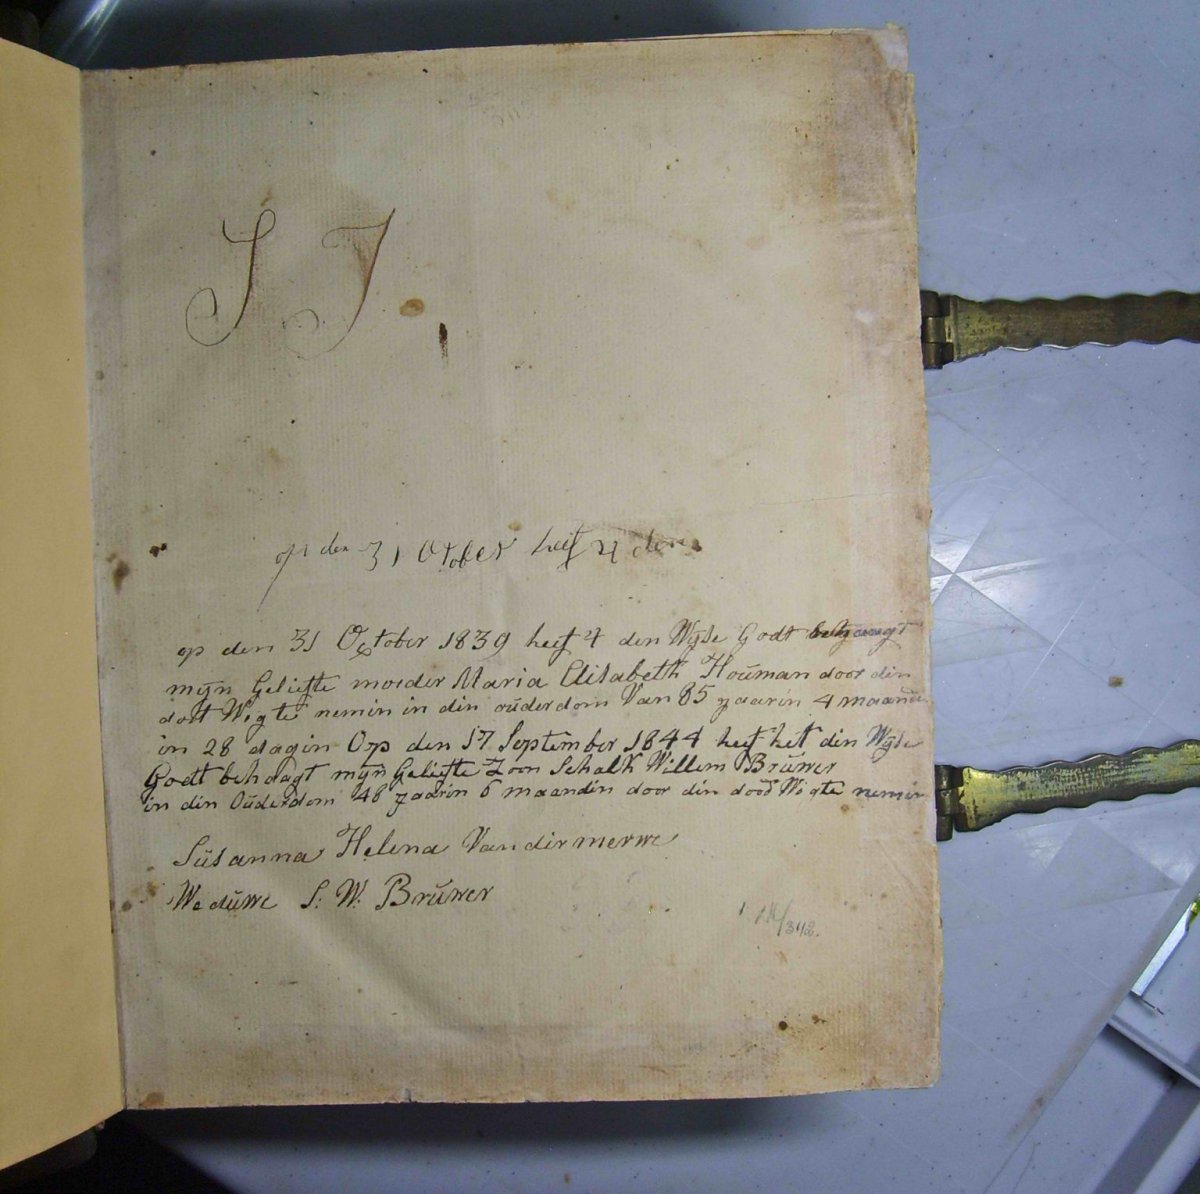 S J
op den 31 Otober heeft
op den 31 October 1839 heeft 4 den Wyse Godt behaagt
myn Geliefte moeder Maria Elisabeth Houman door den
dort Wigte nemin in din ouderdom Van 85 yaarin 4 maande
in 28 dagin Op den 17 September 1844 heeft hett din Wyse
Godt behaagt myn Geliefte Zoon Schalk Willem Bruwer
in din Ouderdom 48 yaarin 6 maandin door din dood Wigte nemin
Susanna Helena Vandirmerwe
Weduwe S: W: Bruwer